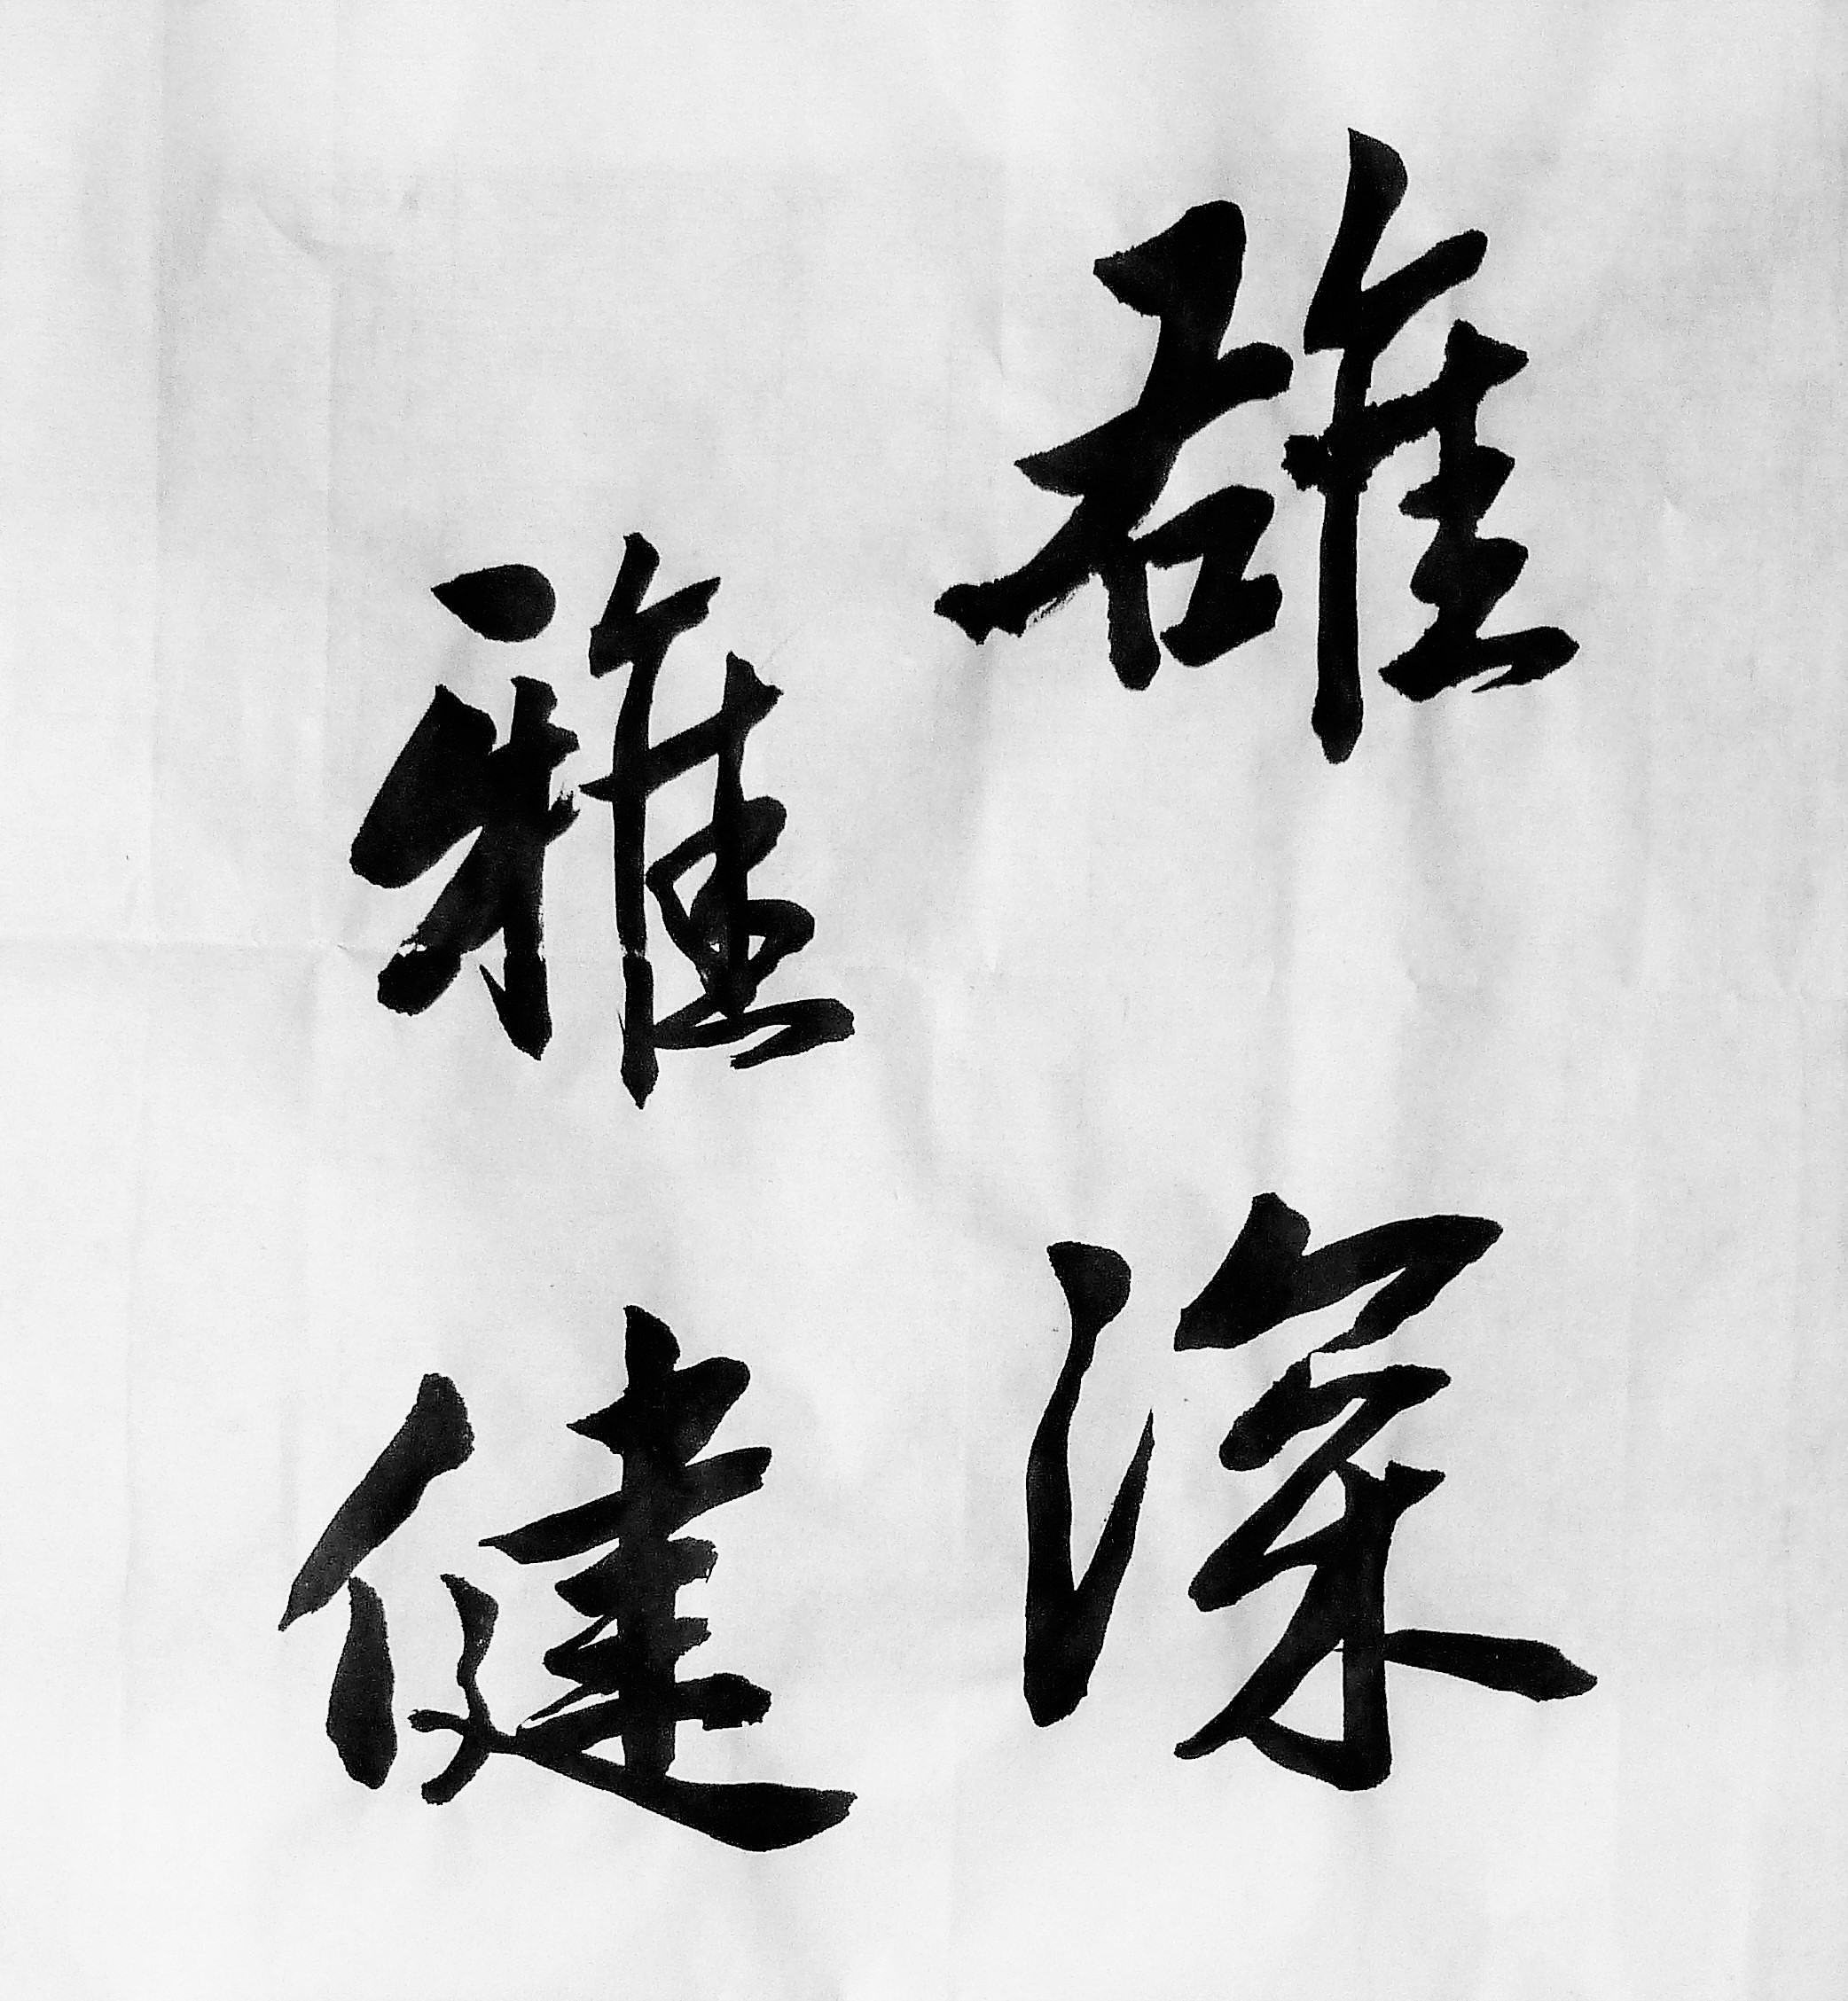 雄深
雅健